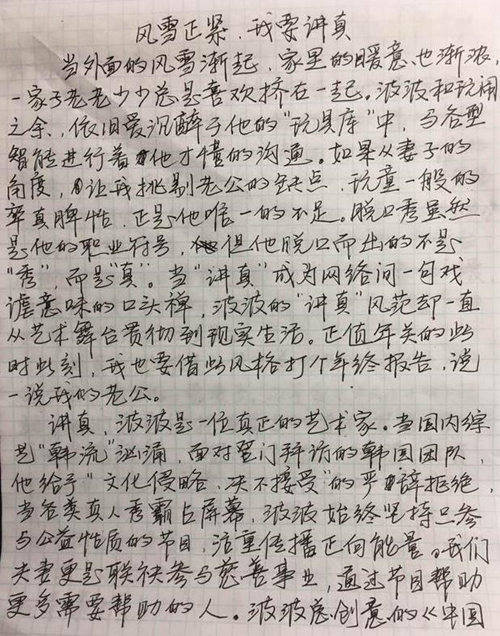 风雪正紧，我要讲真
当外面的风雪渐起，家里的暖意也渐浓，
一家子老老少少总是喜欢挤在一起。波波和玩闹
之余，依旧爱沉醉于他的“玩具库”中，与各型
智能进行着他才懂的沟通。如果从妻子的
角度，让我挑剔老公的缺点，玩童一般的
率真脾性，正是他唯一的不足。脱口秀虽然
是他的职业符号，但他脱口而出的不是
“秀”，而是“真”。当“讲真”成为网络间一句戏
谑意味的口头禅，波波的“讲真”风范却一直
从艺术舞台贯彻到现实生活。正值年关的此
时此刻，我也要借此风格打个年终报告，说
一说我的老公。
讲真，波波是一位真正的艺术家。当国内综
艺“韩流”汹涌，面对登门拜访的韩国团队，
他给予“文化侵略，决不接受”的严辞拒绝，
当各类真人秀霸占屏幕，波波始终坚持只参
与公益性质的节目，注重传播正向能量。我们
夫妻更是联袂参与慈善事业，通过节目帮助
更多需要帮助的人。波波总创意的《中国